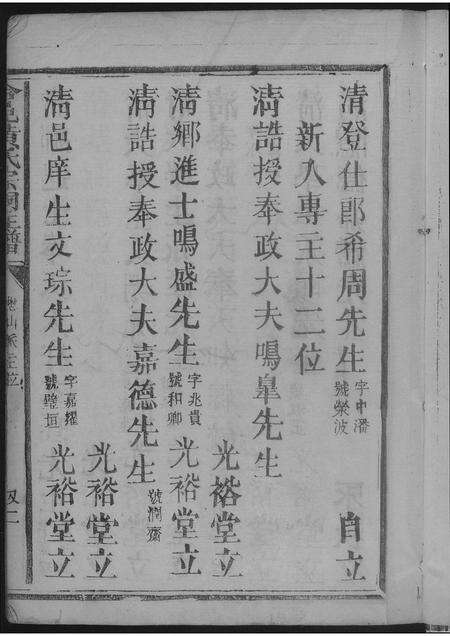 清登仕郎希周先生 字中潘 號榮波 自立
新入專主十二位
清誥授奉政大夫鳴皋先生 光裕堂立
清鄉進士鳴盛先生 字兆貴 號和卿 光裕堂立
清誥授奉政大夫嘉德先生 號潤齋 光裕堂立
清邑庠生文琮先生 字嘉耀 號璧垣 光裕堂立
邑黃氏宗祠主譜
山派主位